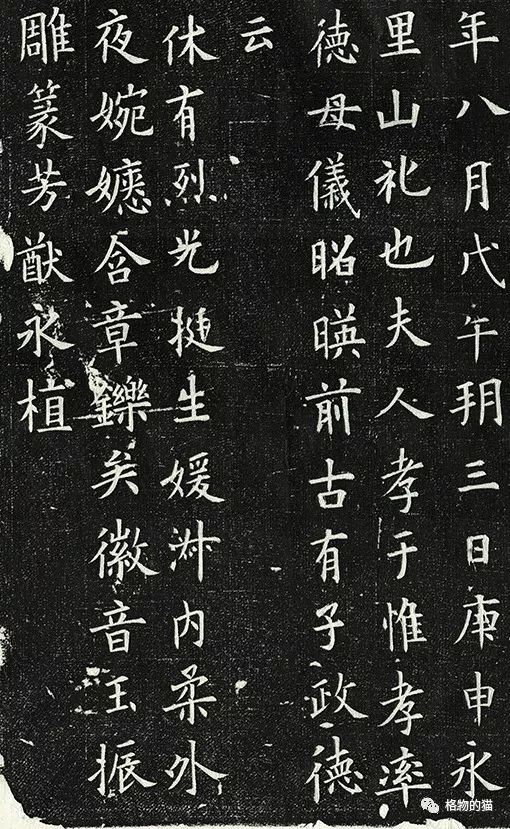 年八月戊午朔三日庚申永
里山礼也夫人孝于惟孝率
德母儀昭暎前古有子政德
云
休有烈光挺生媛淑内柔外
夜婉嫕含章鑠矣徽音玉振
雕篆芳猷永植
格物的猫